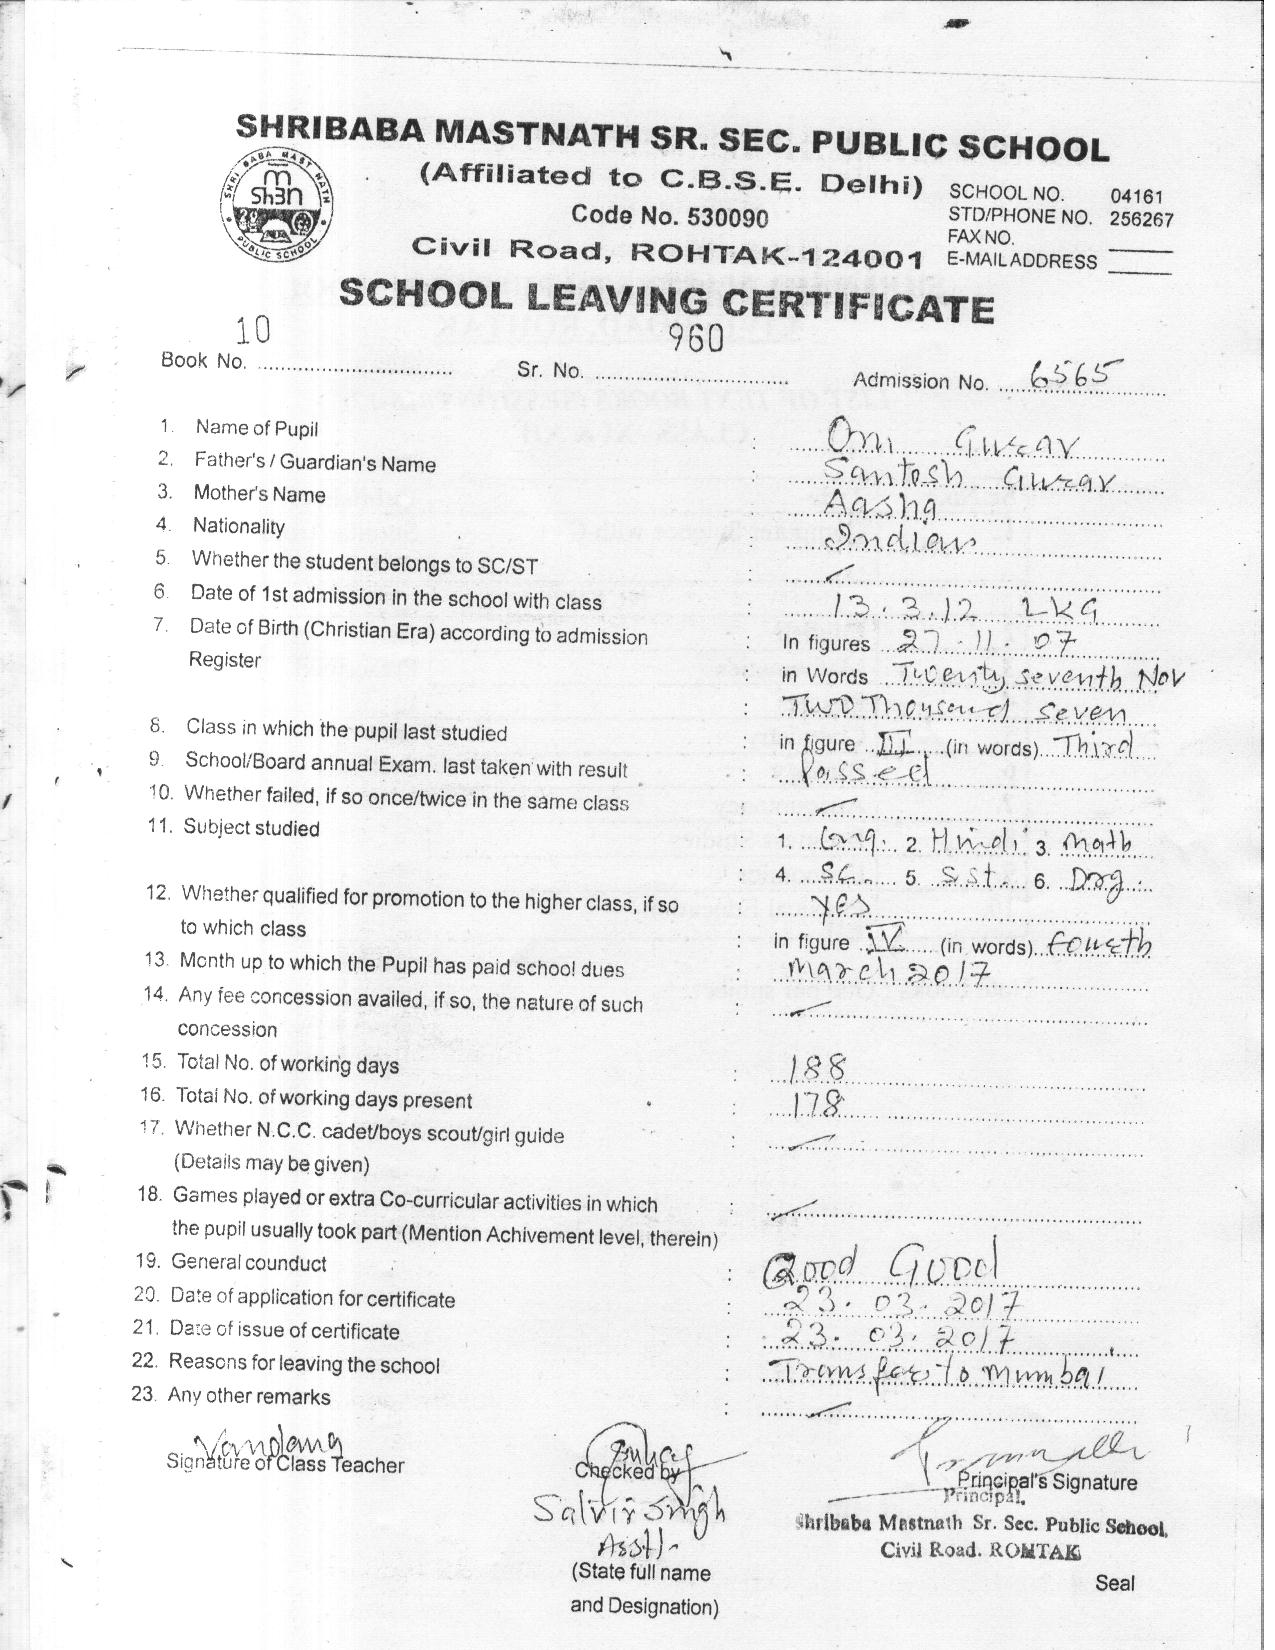 SHRIBABA MASTNATH SR. SEC. PUBLIC SCHOOL
(Affiliated to C.B.S.E. Delhi)
Code No. 530090
Civil Road, ROHTAK-124001
SHRI BABA MAST NATH
Sh3n
PUBLIC SCHOOL
SCHOOL NO. 04161
STD/PHONE NO. 256267
FAX NO.
E-MAIL ADDRESS
SCHOOL LEAVING CERTIFICATE
Book No. 10 Sr. No. 960 Admission No. 6565
1. Name of Pupil : Om Gurav
2. Father's / Guardian's Name : Santosh Gurav
3. Mother's Name : Aasha
4. Nationality : Indian
5. Whether the student belongs to SC/ST :
6. Date of 1st admission in the school with class : 13.3.12 LKG
7. Date of Birth (Christian Era) according to admission : In figures 27.11.07
Register : in Words Twenty seventh Nov
: Two Thousand Seven
8. Class in which the pupil last studied : in figure III (in words) Third
9. School/Board annual Exam. last taken with result : Passed
10. Whether failed, if so once/twice in the same class :
11. Subject studied : 1. Eng. 2. Hindi 3. Math
: 4. SC. 5. S.St. 6. Drg.
12. Whether qualified for promotion to the higher class, if so : Yes
to which class : in figure IV (in words) Fourth
13. Month up to which the Pupil has paid school dues : March 2017
14. Any fee concession availed, if so, the nature of such :
concession
15. Total No. of working days : 188
16. Total No. of working days present : 178
17. Whether N.C.C. cadet/boys scout/girl guide :
(Details may be given)
18. Games played or extra Co-curricular activities in which :
the pupil usually took part (Mention Achivement level, therein)
19. General counduct : Good Good
20. Date of application for certificate : 23.03.2017
21. Date of issue of certificate : 23.03.2017
22. Reasons for leaving the school : Transfar to Mumbai
23. Any other remarks :
Vandana
Signature of Class Teacher
Checked by
Salvir Singh
Asstt.
(State full name
and Designation)
Principal's Signature
Principal.
Shribaba Mastnath Sr. Sec. Public School,
Civil Road. ROHTAK
Seal